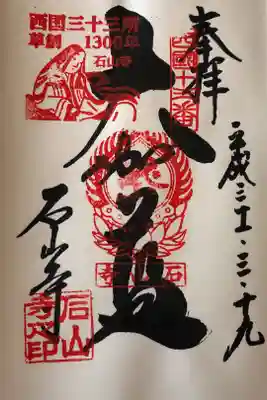 奉拝
西国十三番
平成三十一・三・十九
大伽藍
西国三十三所
草創1300年
石山寺
石山寺
石山寺
石山寺印